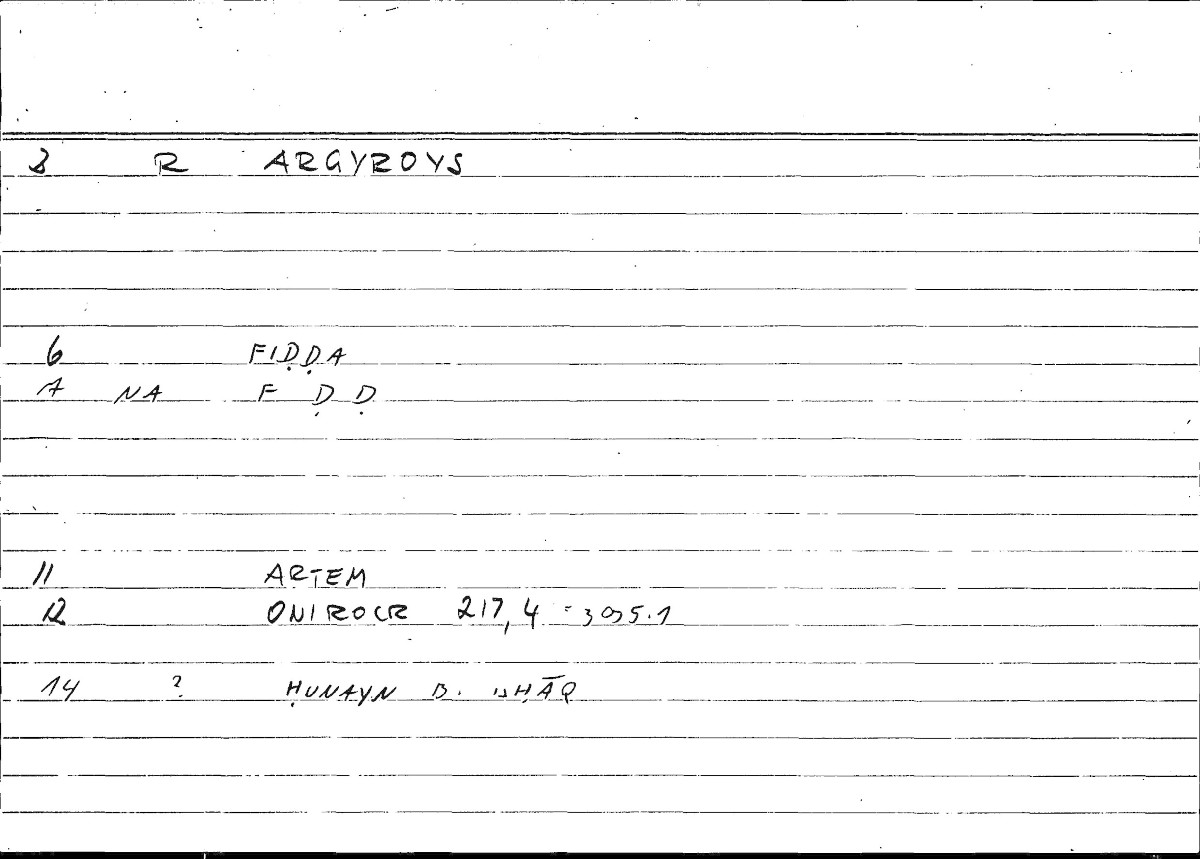 3 R ARGYROYS
6 FIḌḌA
7 NA F Ḍ Ḍ
11 ARTEM
12 ONIROCR 217,4 = 395.1
14 ? ḤUNAYN B. ISḤĀQ